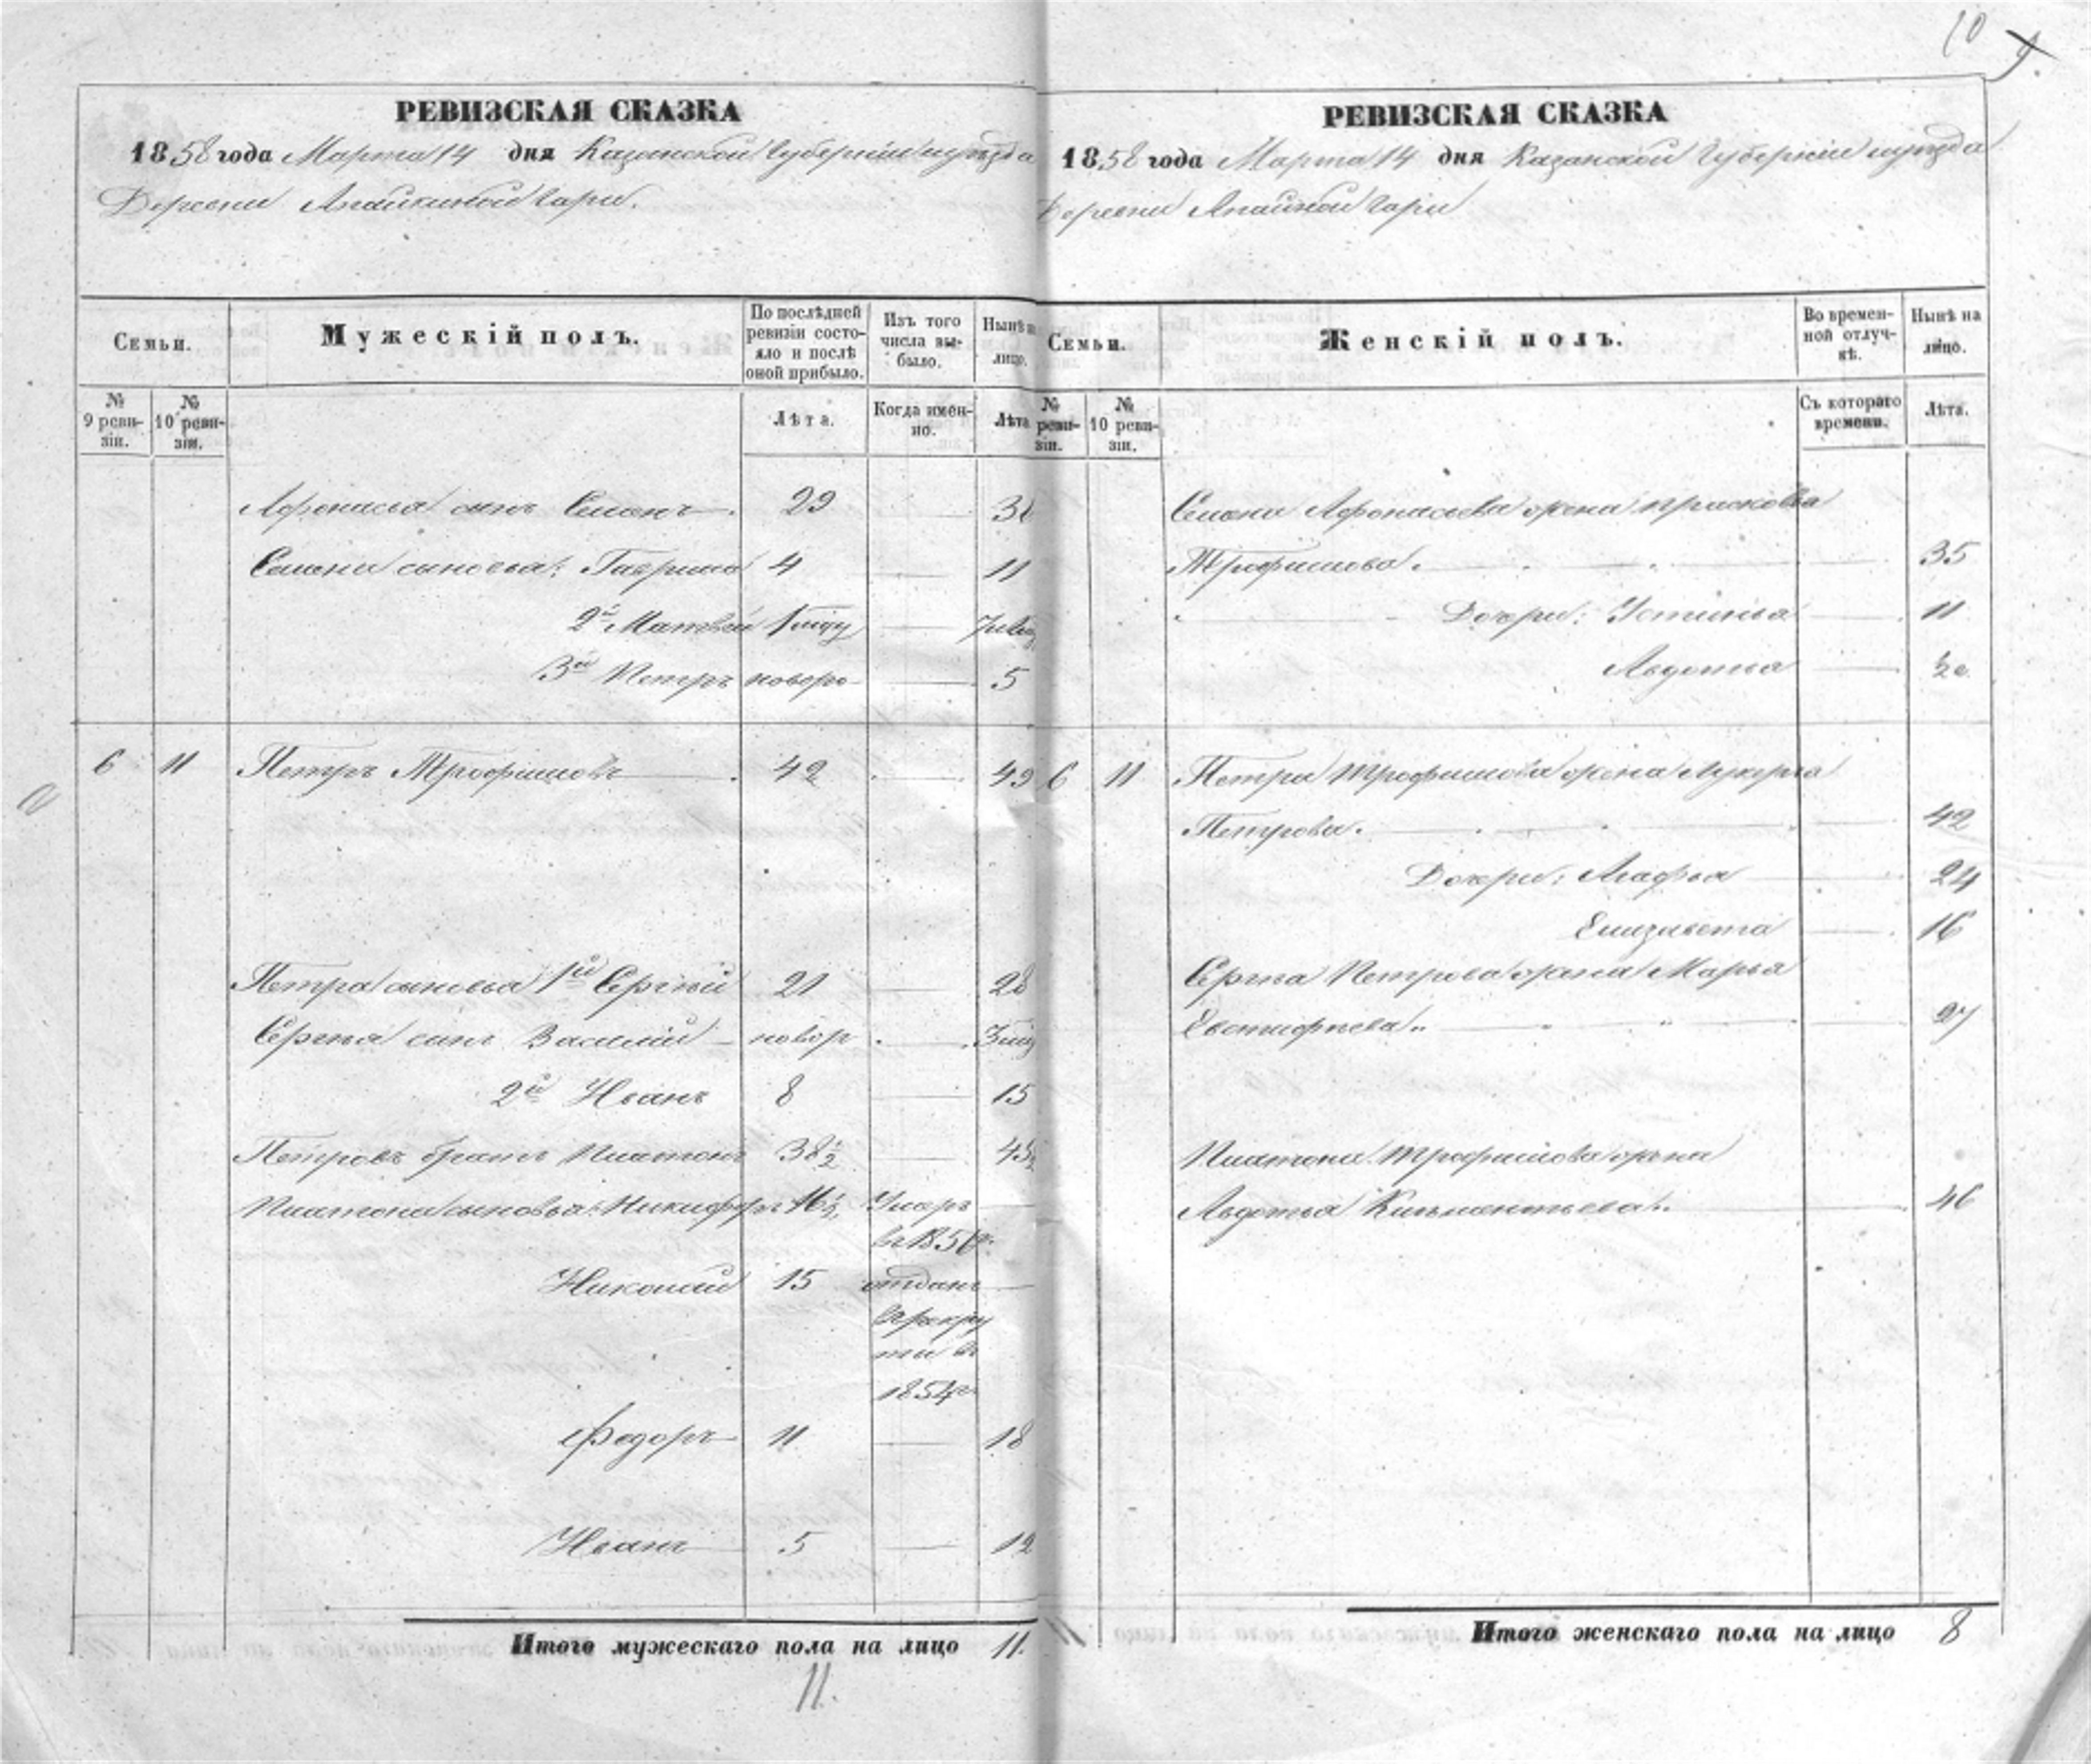 10 9.
РЕВИЗСКАЯ СКАЗКА
1858 года Марта 14 дня Казанской Губернии и уезда
Деревни Апайкиной Гари.
Семьи.
Мужескій полъ.
По послѣдней ревизіи состояло и послѣ оной прибыло.
Изъ того числа выбыло.
Нынѣ на лицо.
№ 9 ревизіи.
№ 10 ревизіи.
Лѣта.
Когда именно.
Лѣта
Афонасья сынъ Семенъ 29
Семена сыновья: Гаврила 4 11
2й Матвѣй 1 году
3й Петръ новоро 5
6 11 Петръ Трофимовъ 42 49
Петра сыновья 1й Сергѣй 21 28
Сергѣя сынъ Василій новор
2й Иванъ 8 15
Петровъ братъ Платонъ 38½ 45½
Платона сыновья: Никифоръ 16½ Умеръ
въ 1856г.
Николай 15 отданъ
въ рекру
ты въ
1854г
Федоръ 11 18
Иванъ 5 12
Итого мужескаго пола на лицо 11.
11.
РЕВИЗСКАЯ СКАЗКА
1858 года Марта 14 дня Казанской Губерніи и уѣзда
Деревни Гари
Семьи.
Женскій полъ.
Во временной отлучкѣ.
Нынѣ на лицо.
№ ревизіи.
№ 10 ревизіи.
Съ котораго времени.
Лѣта.
Семена Афонасьева жена Прасковья
Трофимова. 35
Дочери: Устинья 11
Авдотья
6 11 Петра Трофимова жена Лукерья
Петрова. 42
Дочери: Агафья 24
Елизавета 16
Сергѣя Петрова жена Марья
27
Платона Трофимова жена
Авдотья Кильментьева. 46
Итого женскаго пола на лицо 8